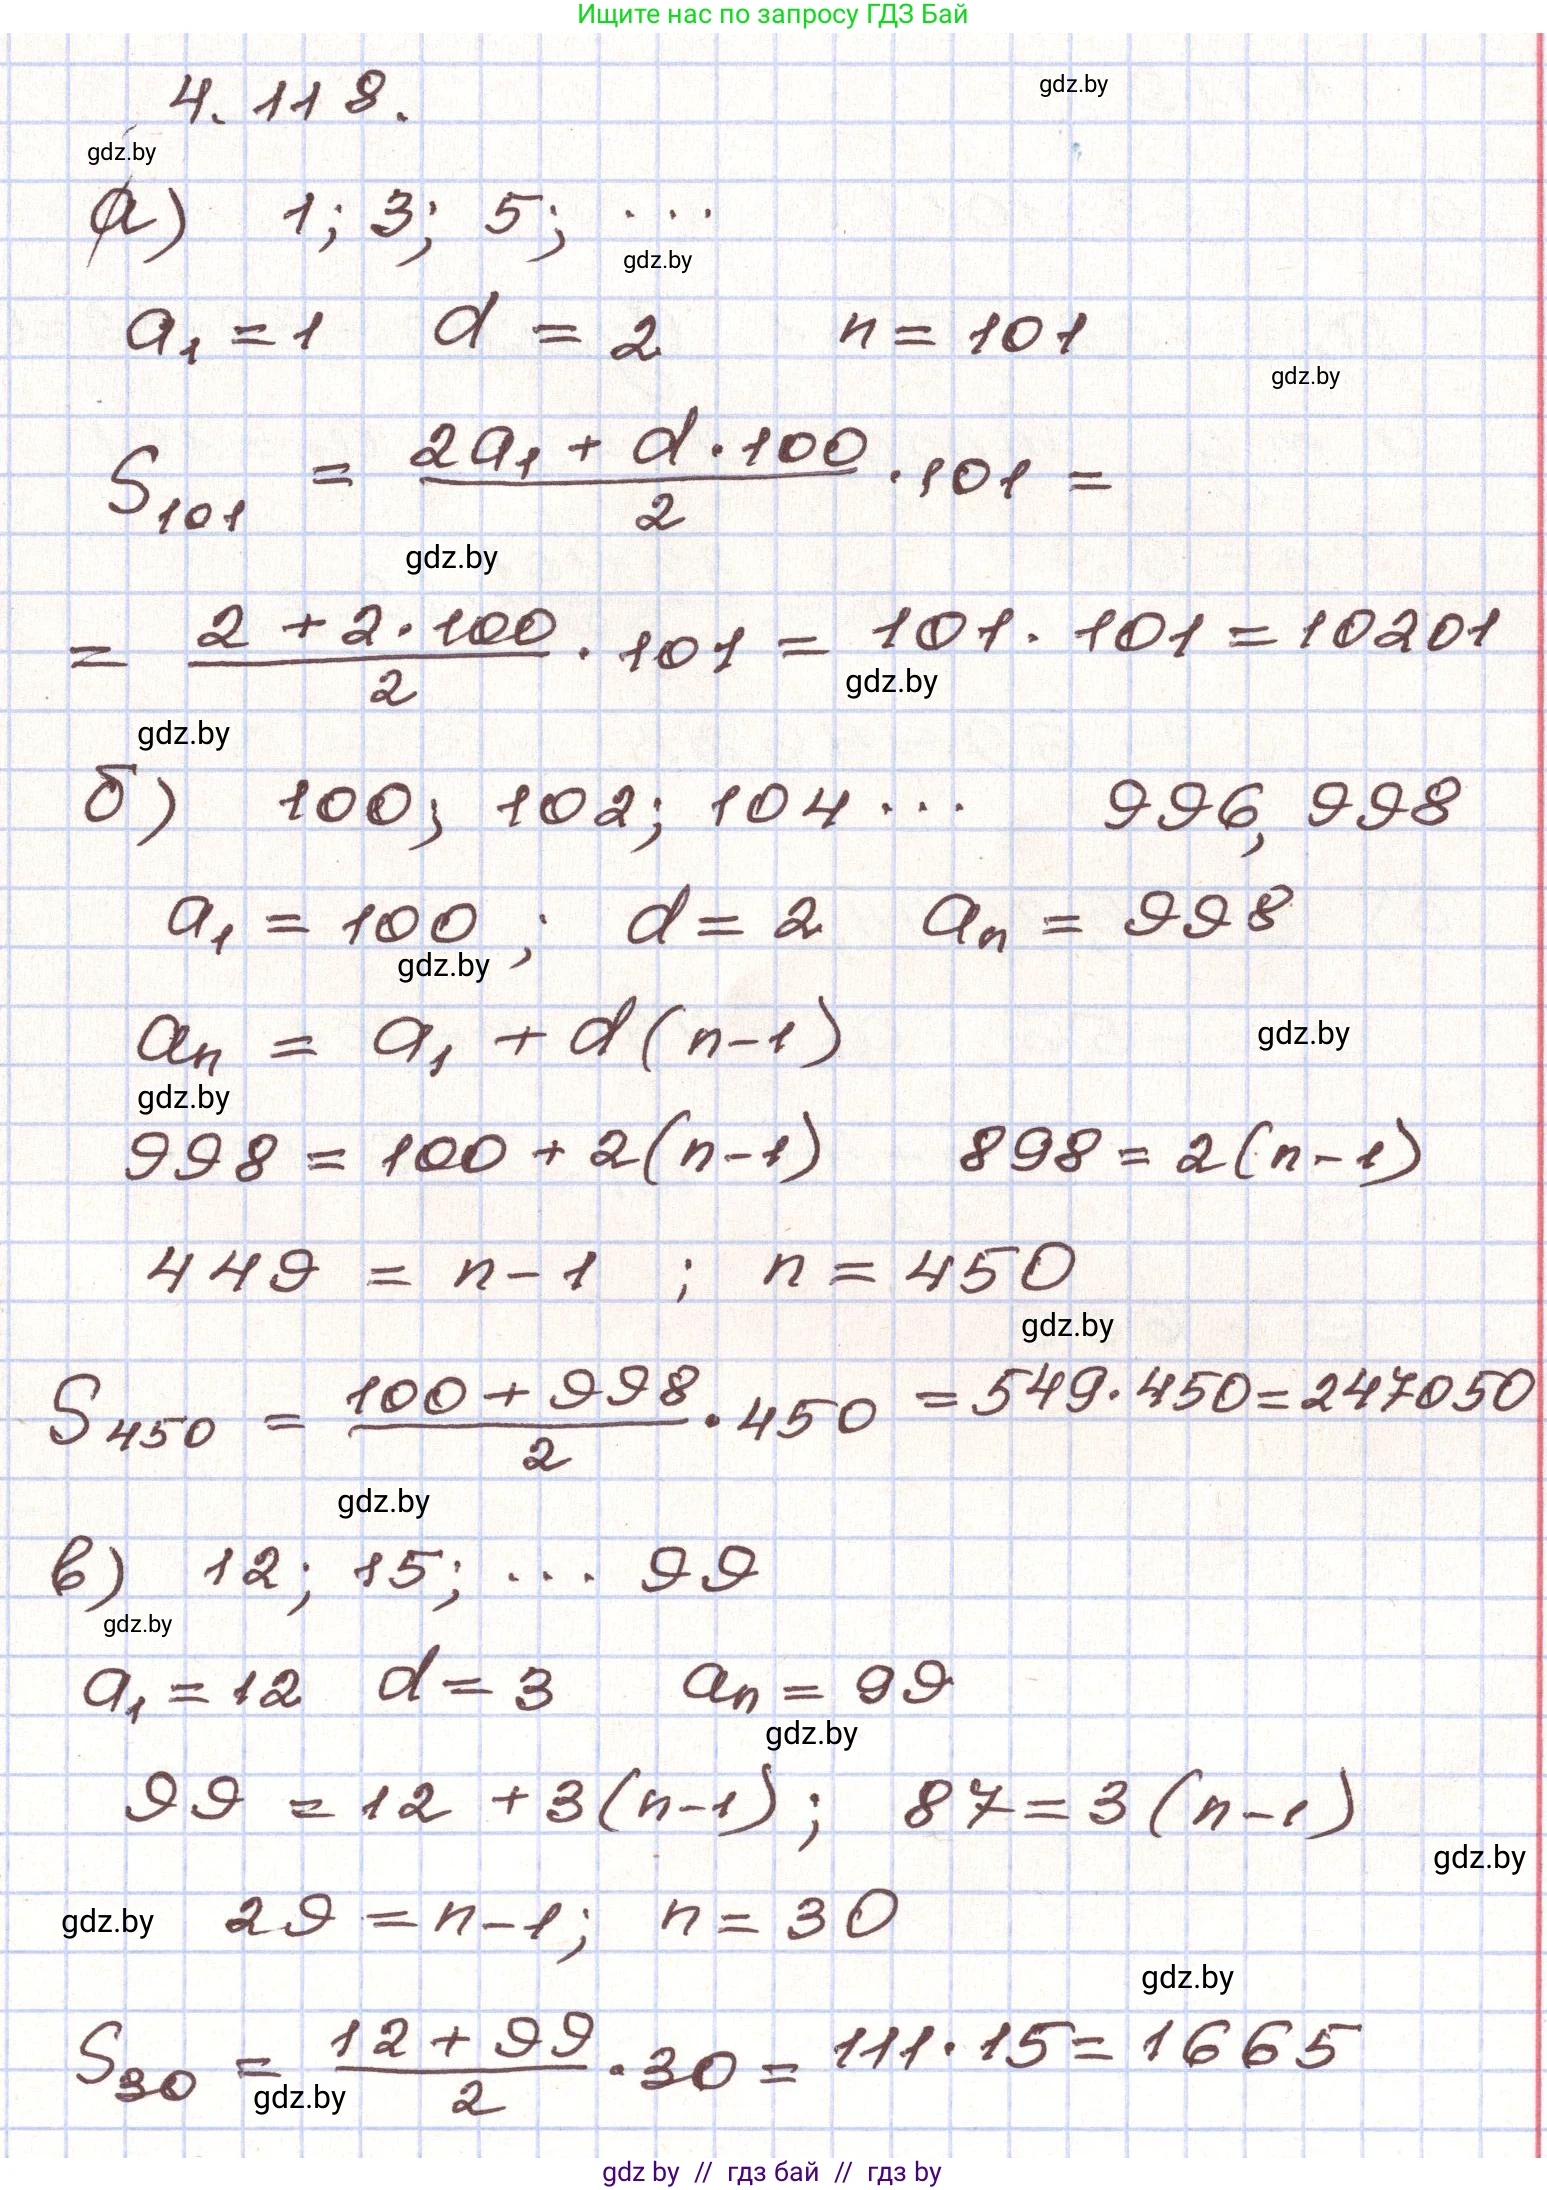 Ищите нас по запросу ГДЗ Бай
4.118.
gdz.by
gdz.by
а) 1; 3; 5; ...
gdz.by
a₁ = 1 d = 2 n = 101
gdz.by
S₁₀₁ = (2a₁ + d · 100)/2 · 101 =
gdz.by
= (2 + 2 · 100)/2 · 101 = 101 · 101 = 10201
gdz.by
gdz.by
б) 100; 102; 104 ... 996, 998
a₁ = 100 ; d = 2 aₙ = 998
gdz.by
aₙ = a₁ + d(n-1)
gdz.by
gdz.by
998 = 100 + 2(n-1) 898 = 2(n-1)
449 = n-1 ; n = 450
gdz.by
S₄₅₀ = (100 + 998)/2 · 450 = 549 · 450 = 247050
gdz.by
в) 12; 15; ... 99
gdz.by
a₁ = 12 d = 3 aₙ = 99
gdz.by
99 = 12 + 3(n-1); 87 = 3(n-1)
gdz.by
gdz.by
29 = n-1; n = 30
gdz.by
S₃₀ = (12 + 99)/2 · 30 = 111 · 15 = 1665
gdz.by
gdz by // гдз бай // гдз by